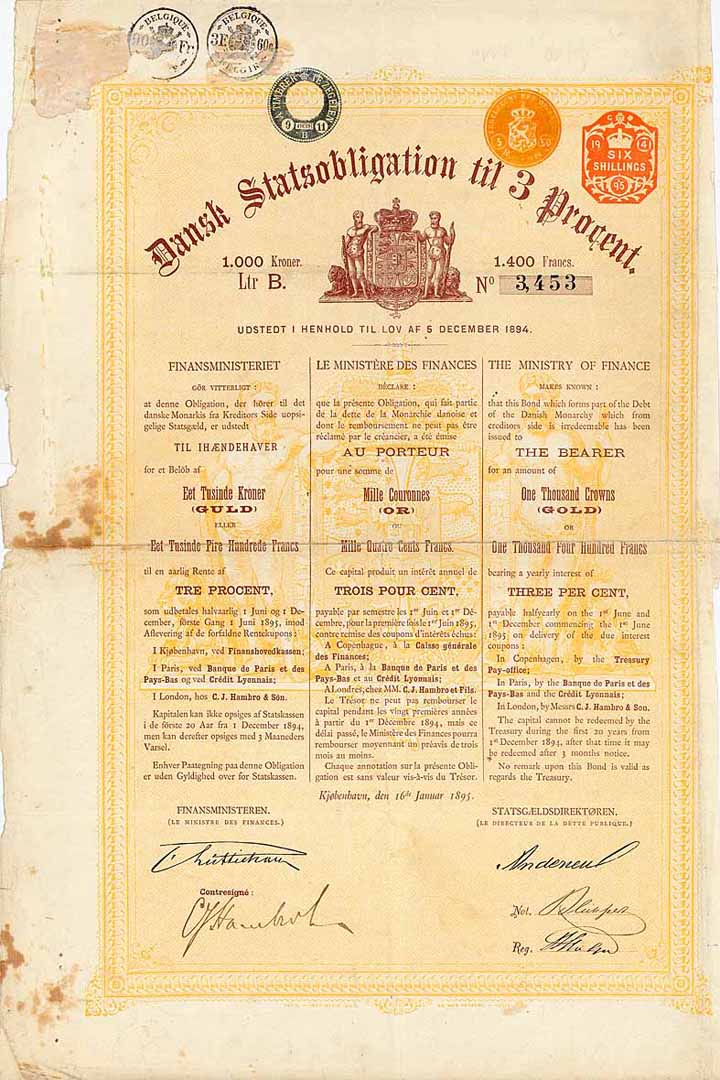 BELGIQUE
Fr
BELGIQUE
3F 60c
BELGIE
TIMBRER
9 11
B
19 41
SIX
SHILLINGS
95
Dansk Statsobligation til 3 Procent.
1.000 Kroner.
1.400 Francs.
Ltr B.
No 3,453
UDSTEDT I HENHOLD TIL LOV AF 5 DECEMBER 1894.
FINANSMINISTERIET
GÖR VITTERLIGT :
at denne Obligation, der hörer til det
danske Monarkis fra Kreditors Side uopsi-
gelige Statsgæld, er udstedt
TIL IHÆNDEHAVER
for et Belöb af
Eet Tusinde Kroner
(GULD)
ELLER
Eet Tusinde Fire Hundrede Francs
til en aarlig Rente af
TRE PROCENT,
som udbetales halvaarlig 1 Juni og 1 De-
cember, förste Gang 1 Juni 1895, imod
Aflevering af de forfaldne Rentekupons:
I Kjøbenhavn, ved Finanshovedkassen;
I Paris, ved Banque de Paris et des
Pays-Bas og ved Crédit Lyonnais;
I London, hos C. J. Hambro & Sön.
Kapitalen kan ikke opsiges af Statskassen
i de förste 20 Aar fra 1 December 1894,
men kan derefter opsiges med 3 Maaneders
Varsel.
Enhver Paategning paa denne Obligation
er uden Gyldighed over for Statskassen.
LE MINISTÈRE DES FINANCES
DÉCLARE :
que la présente Obligation, qui fait partie
de la dette de la Monarchie danoise et
dont le remboursement ne peut pas être
réclamé par le créancier, a été émise
AU PORTEUR
pour une somme de
Mille Couronnes
(OR)
OU
Mille Quatre Cents Francs.
Ce capital produit un intérêt annuel de
TROIS POUR CENT,
payable par semestre les 1er Juin et 1er Dé-
cembre, pour la première fois le 1er Juin 1895,
contre remise des coupons d'intérêts échus:
A Copenhague, à la Caisse générale
des Finances;
A Paris, à la Banque de Paris et des
Pays-Bas et au Crédit Lyonnais;
A Londres, chez MM. C. J. Hambro et Fils.
Le Trésor ne peut pas rembourser le
capital pendant les vingt premières années
à partir du 1er Décembre 1894, mais ce
délai passé, le Ministère des Finances pourra
rembourser moyennant un préavis de trois
mois au moins.
Chaque annotation sur la présente Obli-
gation est sans valeur vis-à-vis du Trésor.
THE MINISTRY OF FINANCE
MAKES KNOWN :
that this Bond which forms part of the Debt
of the Danish Monarchy which from
creditors side is irredeemable has been
issued to
THE BEARER
for an amount of
One Thousand Crowns
(GOLD)
OR
One Thousand Four Hundred Francs
bearing a yearly interest of
THREE PER CENT,
payable halfyearly on the 1st June and
1st December commencing the 1st June
1895 on delivery of the due interest
coupons :
In Copenhagen, by the Treasury
Pay-office;
In Paris, by the Banque de Paris et des
Pays-Bas and the Crédit Lyonnais;
In London, by Messrs C. J. Hambro & Son.
The capital cannot be redeemed by the
Treasury during the first 20 years from
1st December 1894, after that time it may
be redeemed after 3 months notice.
No remark upon this Bond is valid as
regards the Treasury.
Kjøbenhavn, den 16de Januar 1895.
FINANSMINISTEREN.
(LE MINISTRE DES FINANCES.)
STATSGÆLDSDIREKTØREN.
(LE DIRECTEUR DE LA DETTE PUBLIQUE.)
Contresigné :
CJHambro
Not.
Reg.